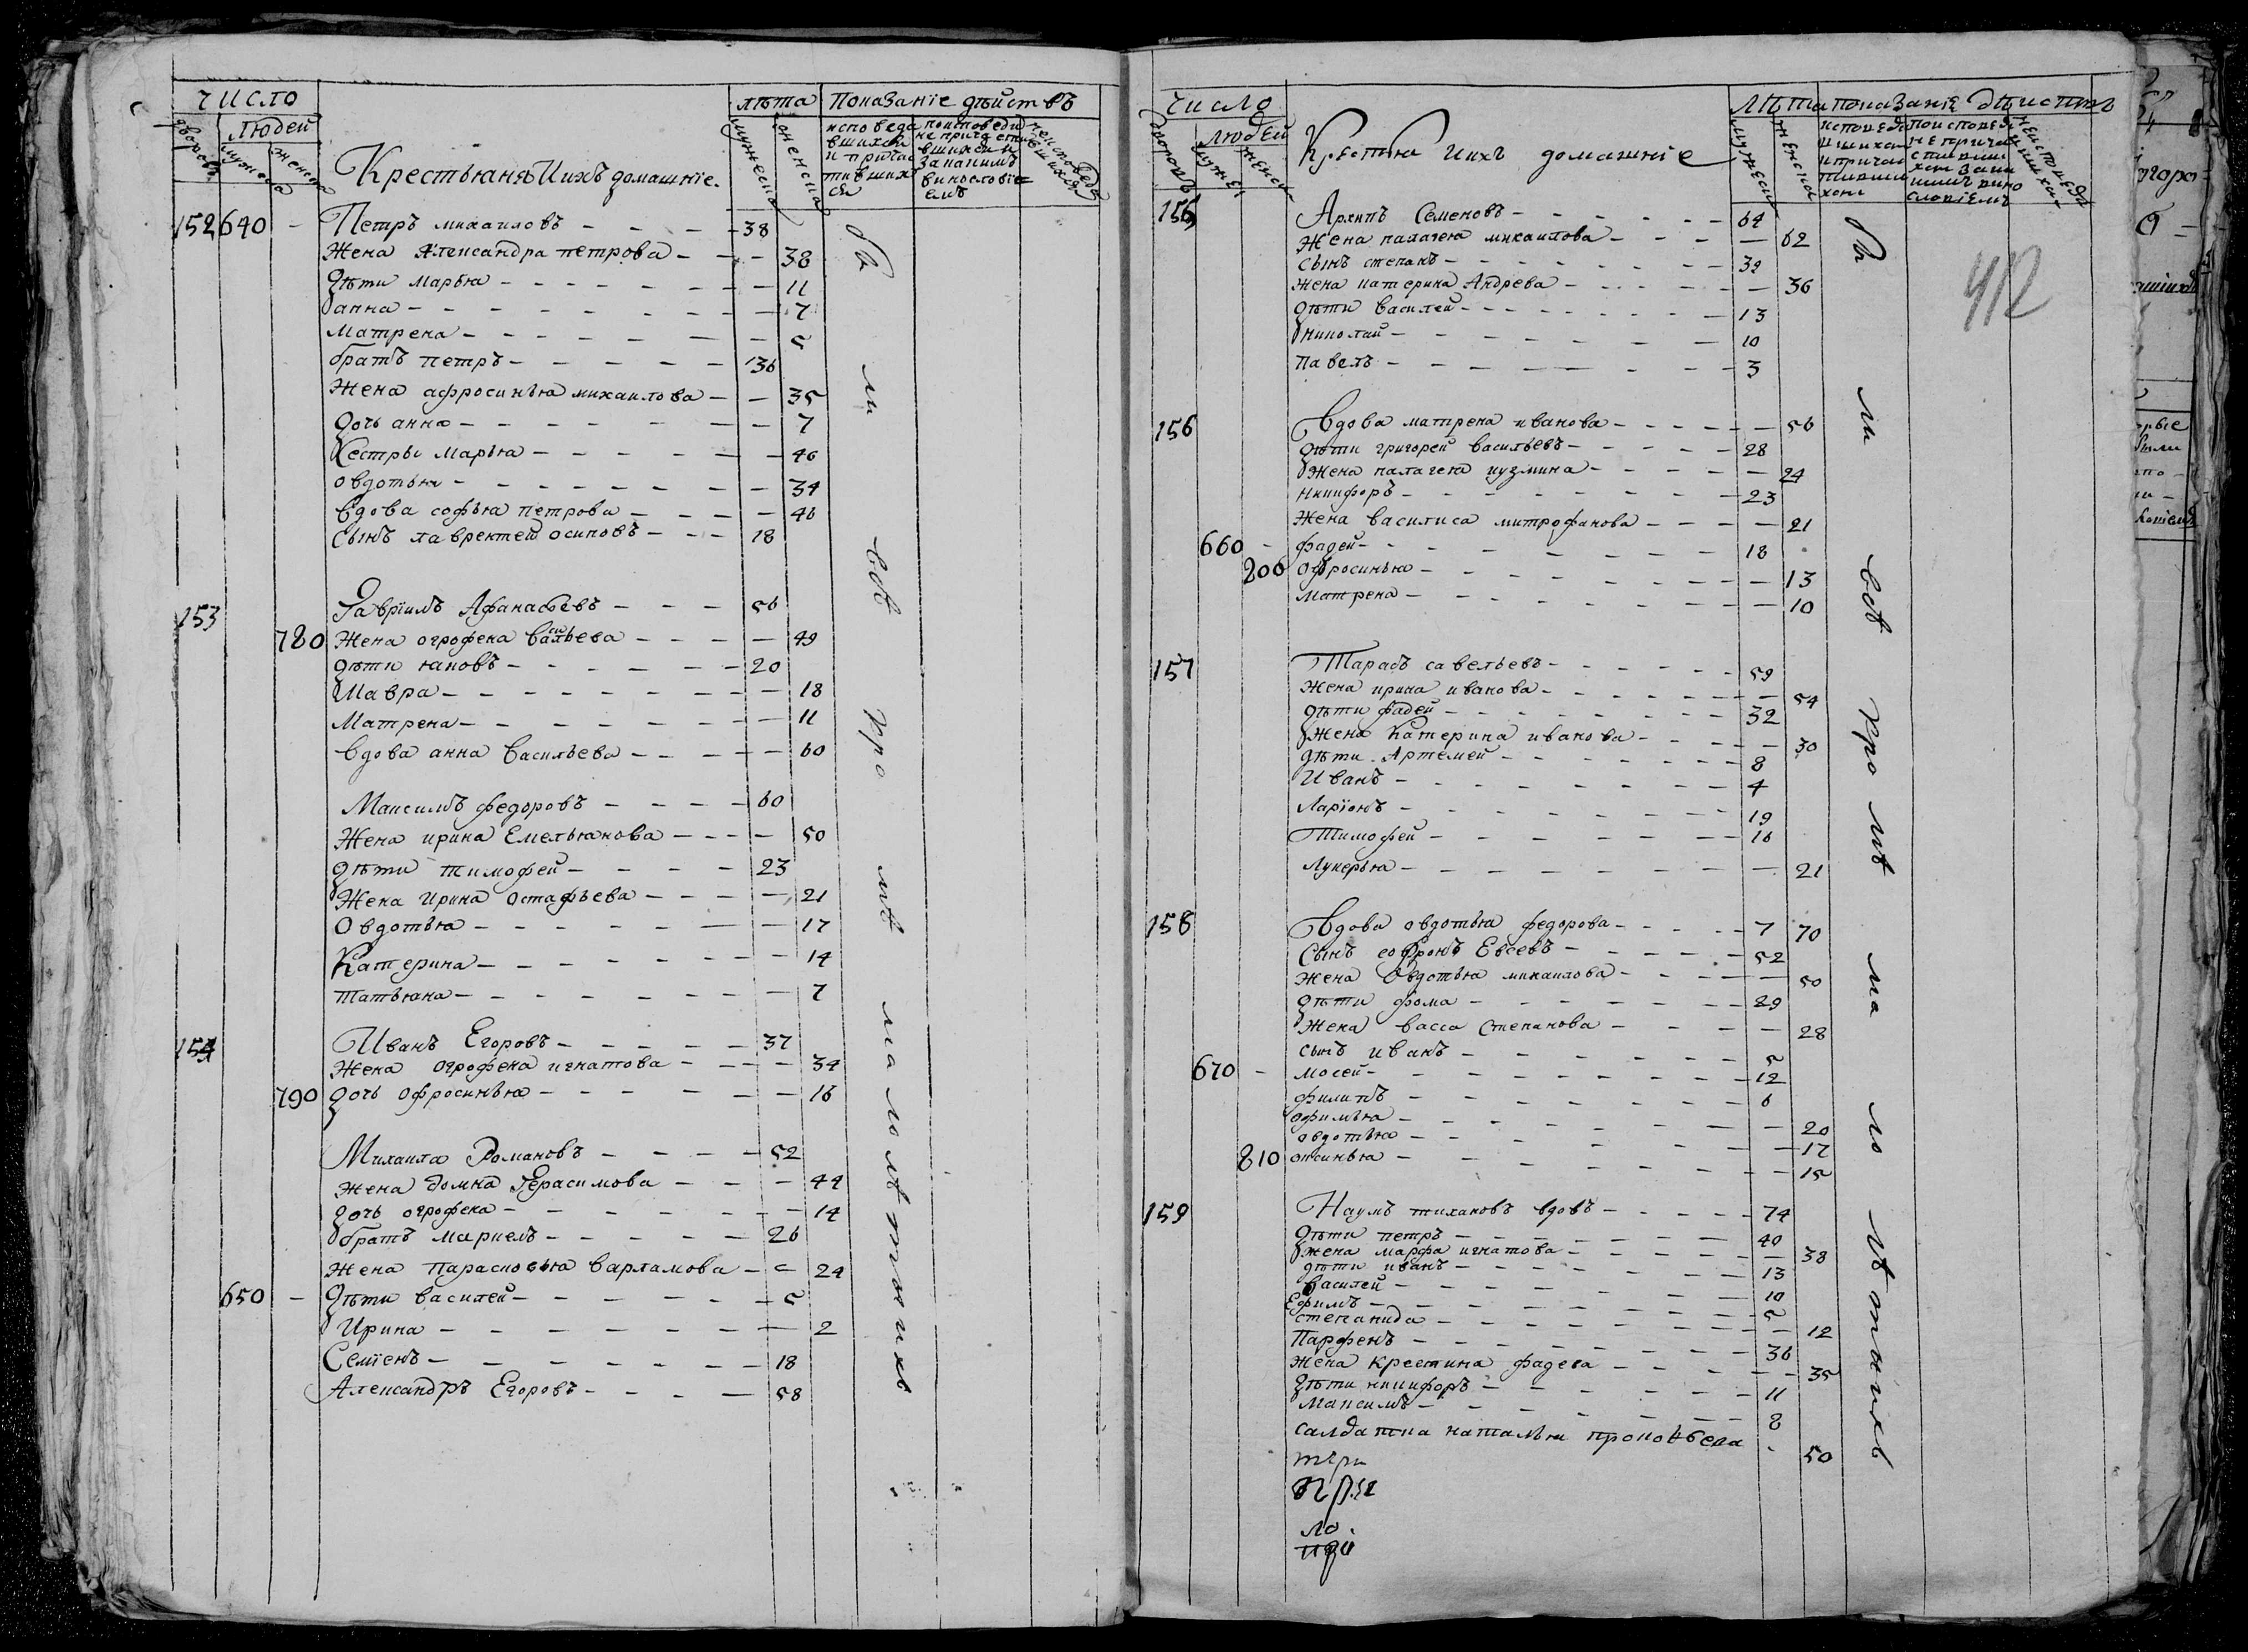 число
лѣта Показаніе дѣйствъ
дворовъ
людей
мужеска
женска
Крестьяня И ихъ домашніе.
мужеска
женска
исповеда
вшихся
и причас
тивших
ся
поисповеди
не прича сти
вшихся и
за какимъ
винословіе
емъ
неисповеда
вшихся
152 640 – Петръ михаиловъ – – – 38
Жена Александра петрова – – – 38
дѣти Марья – – – 11
анна – – – 7
Матрена – – – 5
братъ петръ – – – 36
Жена афросинья михаилова – – 35
дочь анна – – – 7
Сестры Марья – – – 40
овдотья – – – 34
вдова софья петрова – – – 46
Сынъ лаврентей осиповъ – – – 18
153 Гавріилъ Афанасьевъ – – – 56
780 Жена огрофена Васильева – – – 49
дѣти яковъ – – – 20
Мавра – – – 18
Матрена – – – 11
Вдова анна Васильева – – – 60
Максимъ федоровъ – – – 60
Жена ирина Емельянова – – – 50
дѣти тимофей – – – 23
Жена Ирина Остафьева – – – 21
Овдотья – – – 17
Катерина – – – 14
татьяна – – – 7
154 Иванъ Егоровъ – – – 37
Жена огрофена игнатова – – – 34
790 дочь офросинья – – – 16
Михаила Романовъ – – – 52
Жена домна Герасимова – – – 44
дочь огрофена – – – 14
братъ маркелъ – – – 26
Жена Парасковья варламова – – 24
650 – дѣти василей – – – 5
Ирина – – – 2
Семіенъ – – – 18
Александръ Егоровъ – – – 58
вси
все
про
мѣ
малолѣтныхъ
число
Лѣта показаніе дѣиствъ
дворовъ
людей
мужес
женск
Крестьяня и ихъ домашніе
мужеска
женска
412
155 Архипъ Семеновъ – – – 64
Жена палагея михаилова – – – 62
сынъ степанъ – – – 39
жена катерина Андрева – – – 36
дѣти василей – – – 13
николай – – – 10
павелъ – – – 3
156 Вдова матрена иванова – – – 56
дѣти григорей васильевъ – – – 28
Жена палагея кузмина – – – 24
никифоръ – – – 23
Жена василиса митрофанова – – – 21
660 – фадей – – – 18
800 офросинья – – – 13
матрена – – – 10
157 Тарасъ савельевъ – – – 59
Жена ирина иванова – – – 54
дѣти фадей – – – 32
Жена Катерина иванова – – – 30
дѣти Артемей – – – 8
Иванъ – – – 4
Ларіонъ – – – 19
Тимофей – – – 16
Лукерья – – – 21
158 Вдова овдотья федорова – – – 7 70
Сынъ софронъ Евсевъ – – – 52
Жена Овдотья михаилова – – – 50
дѣти фома – – – 29
Жена васса степанова – – – 28
сынъ иванъ – – – 5
670 – мосей – – – 12
филипъ – – – 6
офимья – – – 20
овдотья – – – 17
810 оксинья – – – 15
159 Наумъ тихановъ вдовъ – – – 74
дѣти петръ – – – 40
Жена марфа игнатова – – – 38
дѣти иванъ – – – 13
василей – – – 10
Ефимъ – – – 5
степанида – – – 12
Парфенъ – – – 36
Жена крестина фадева – – – 35
дѣти никифоръ – – – 11
максимъ – – – 8
салдатка наталья прокофьева 50
ло